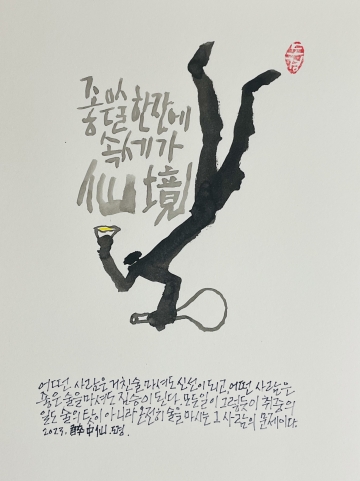 좋은 술 한잔에
속세가
仙境
어떤 사람은 거친술 마셔도 신선이 되고, 어떤 사람은
좋은 술을 마셔도 짐승이 된다. 모든일이 그렇듯이 취중의
일도 술의 탓이 아니라 온전히 술을 마시는 그 사람의 문제이다.
2023. 醉中仙.